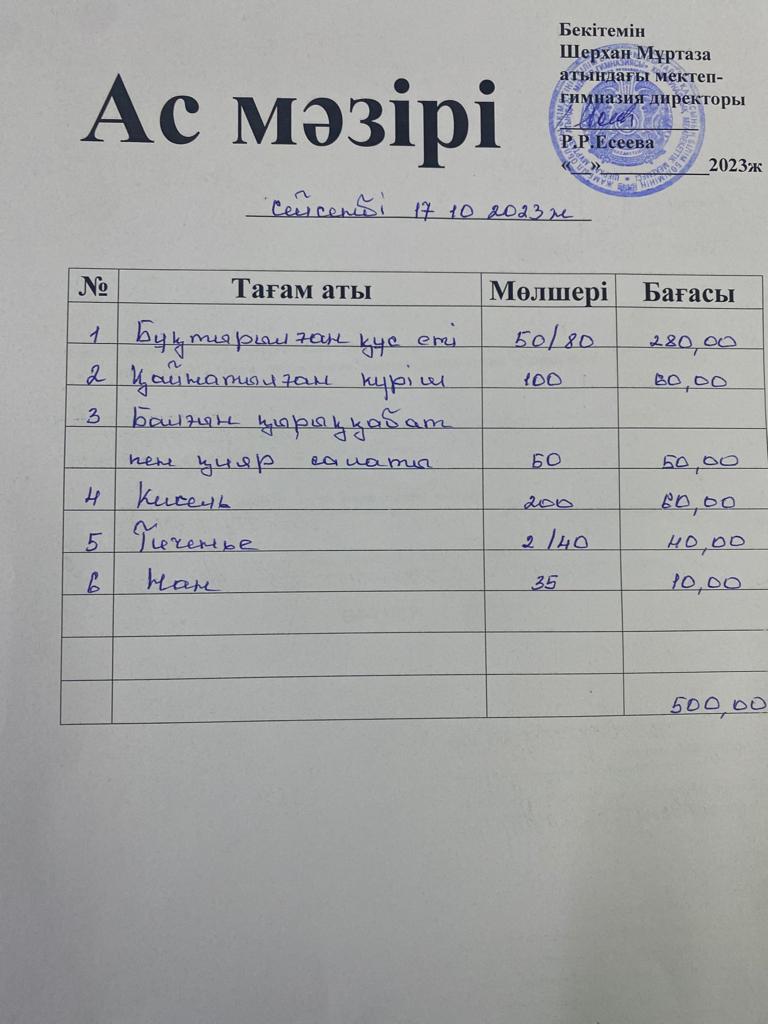 Бекітемін
Шерхан Мұртаза
атындағы мектеп-
гимназия директоры
Р.Р.Есеева
« » 2023ж
Ас мәзірі
сейсенбі 17 10 2023ж
№ Тағам аты Мөлшері Бағасы
1 Бұқтырылған құс еті 50/80 280,00
2 Қайнатылған күріш 100 60,00
3 Балғын қырыққабат
пен қияр салаты 50 50,00
4 Кисель 200 60,00
5 Печенье 2/40 40,00
6 Нан 35 10,00
500,00